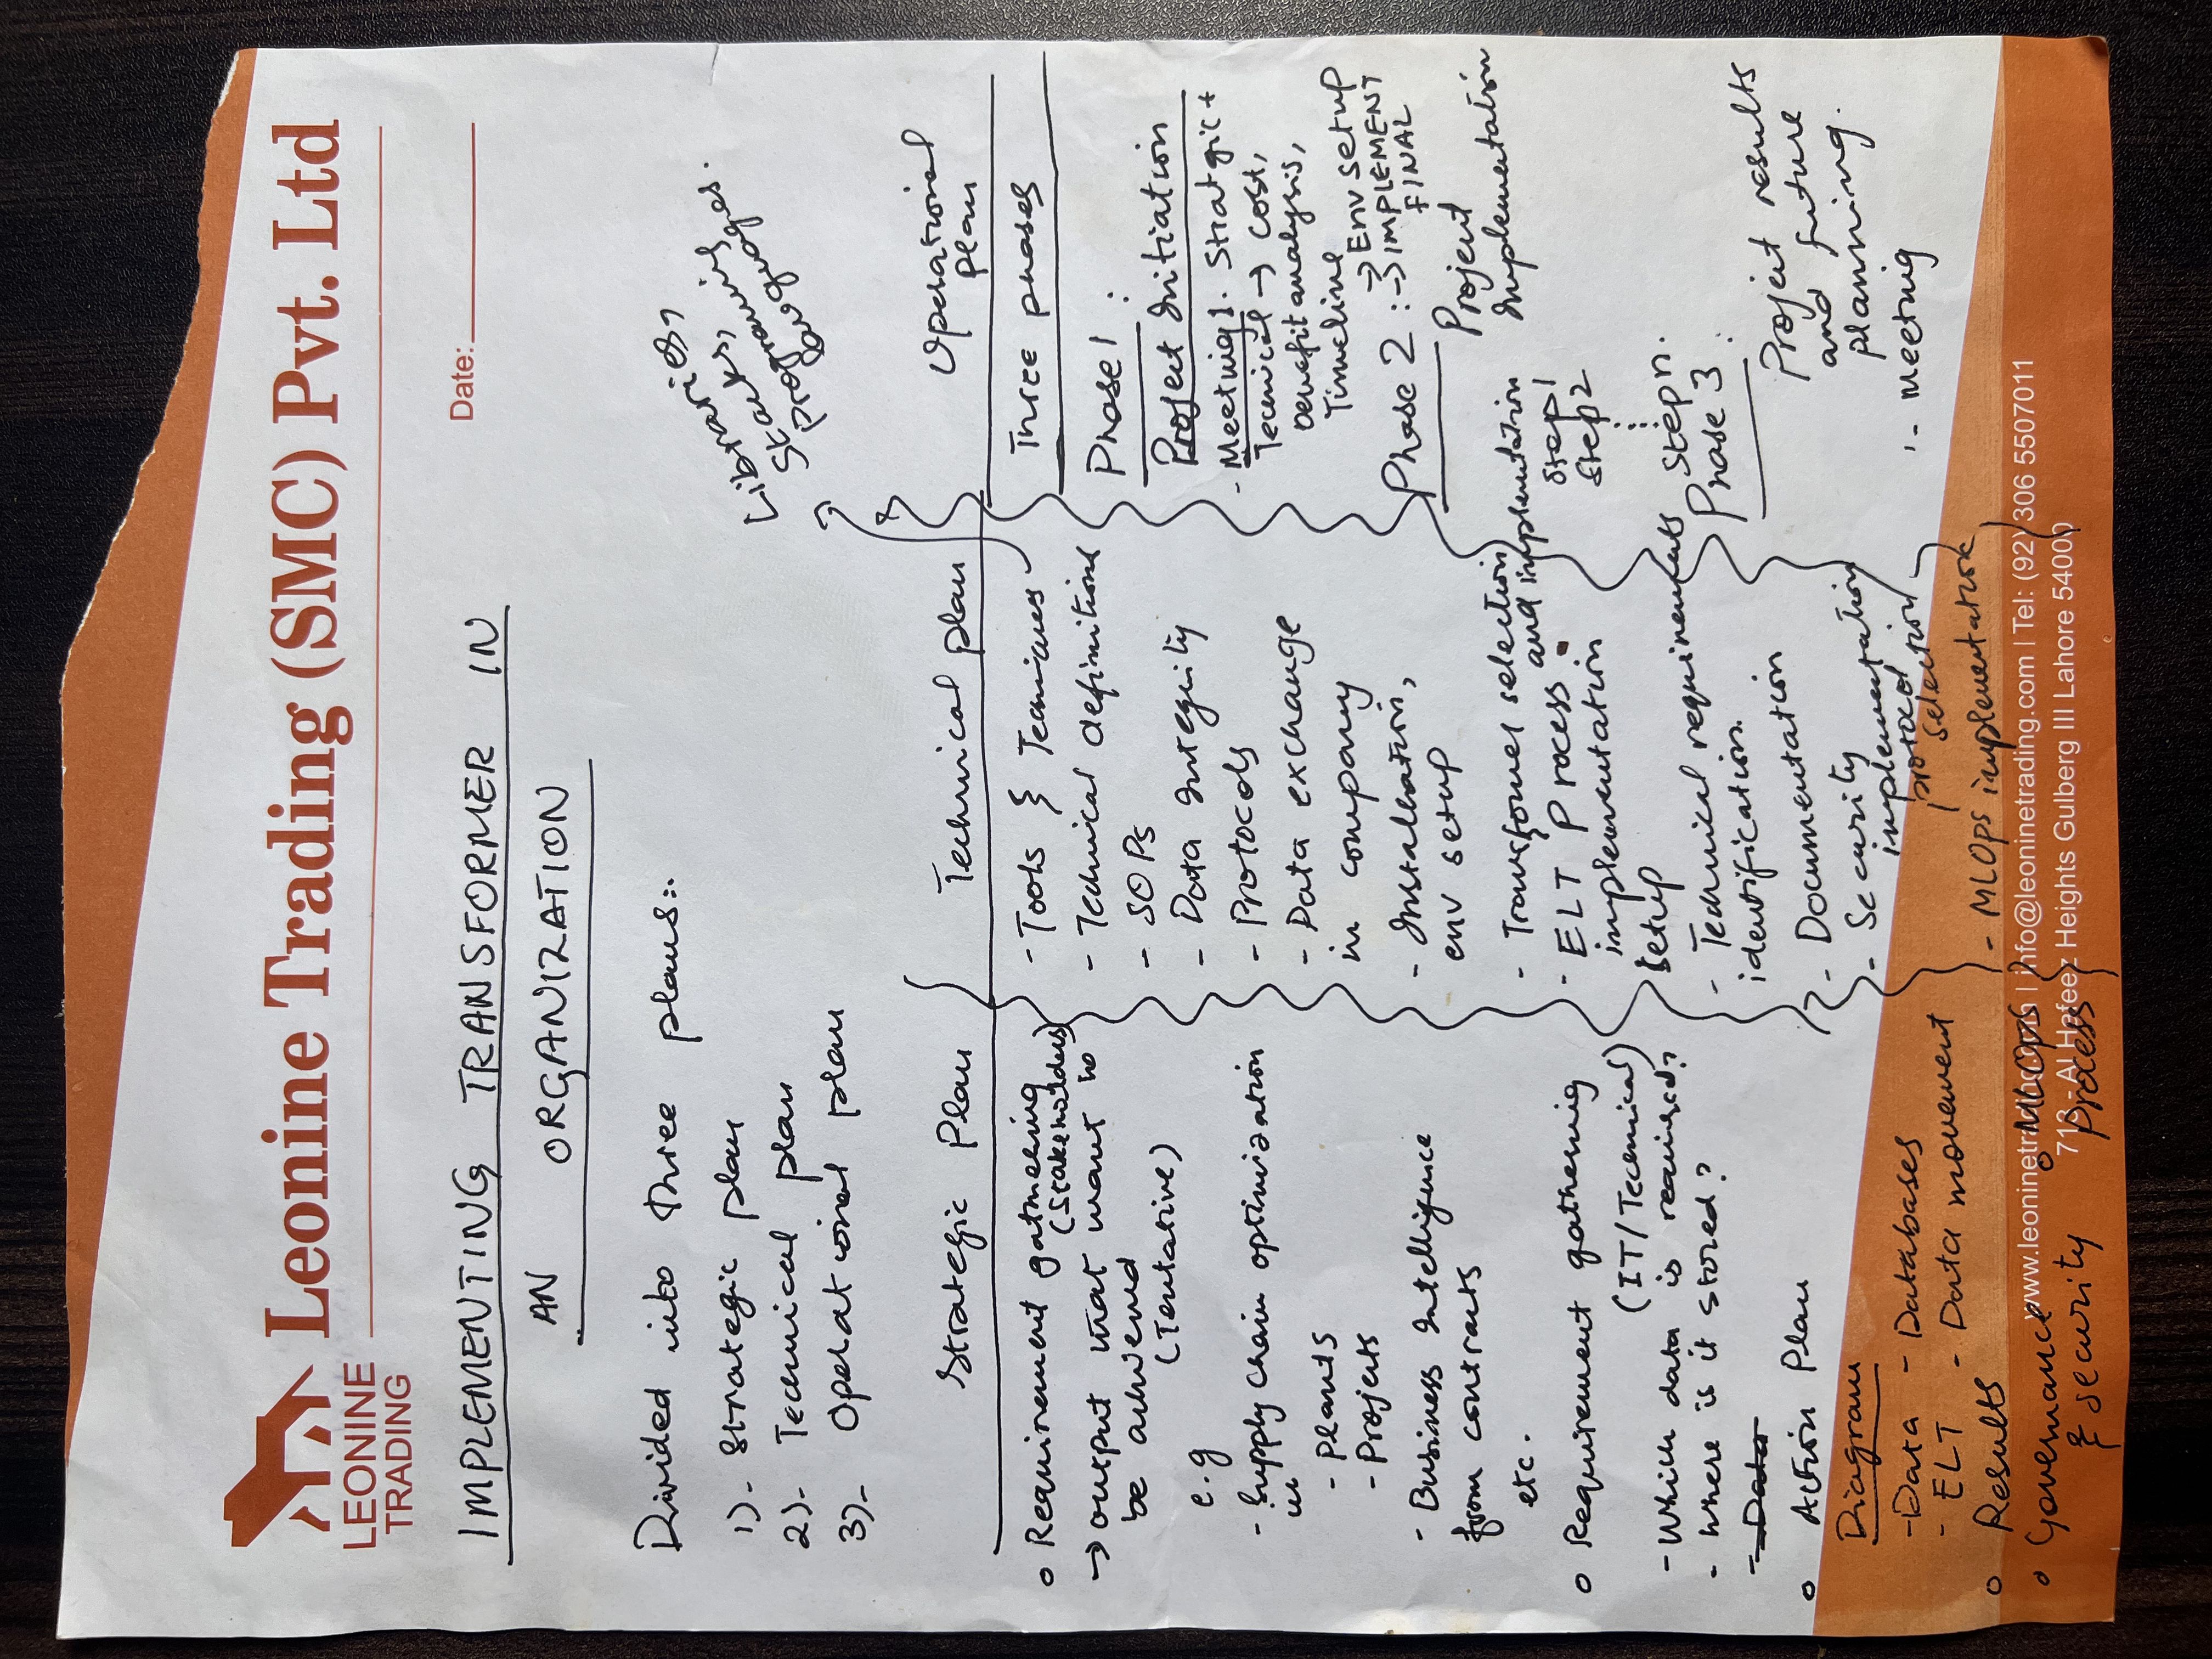 LEONINE
TRADING
Leonine Trading (SMC) Pvt. Ltd
Date:
IMPLEMENTING TRANSFORMER IN
AN ORGANIZATION
Divided into three plans:.
1)- Strategic plan
2)- Technical plan
3)- Operational plan
Libraries,
Librarys,
prog lavguages.
Strategic Plan
o Requirement gathering
(Stakeholders)
→ output that want to
be achieved
(Tentative)
e.g
- Supply chain optimization
in
- Plants
- Projects
- Business Intelligence
from contracts
etc.
o Requirement gathering
(IT/Technical)
- Which data is required?
- where is it stored?
- Data
o Action Plan
Diagram
- Data - Databases
- ELT - Data movement
o Results
o Governance
& security
o MLOps
process
Technical plan
- Tools & Techniques
- Technical definitions
- SOPs
- Data Integrity
- Protocols
- Data exchange
in company
- Installation,
env setup
- Transformer selection
and implementation
- ELT Process
implementation
setup
- Technical requirements
identification.
- Documentation
- Security
implementation
protocol
selection
- MLOps implementation
Operational
plan
Three phases
Phase 1 :
Project Initiation
- Meeting 1. Stratgic+
Tecnical → cost,
benefit analysis,
Timeline
Phase 2 :
→ Env setup
→ IMPLEMENT
FINAL
Project
Implementation
Step 1
Step 2
Step n.
Phase 3 :
Project results
and future
planning.
- meeting
www.leoninetrading.com | info@leoninetrading.com | Tel: (92) 306 5507011
713 - Al Hafeez Heights Gulberg III Lahore 54000